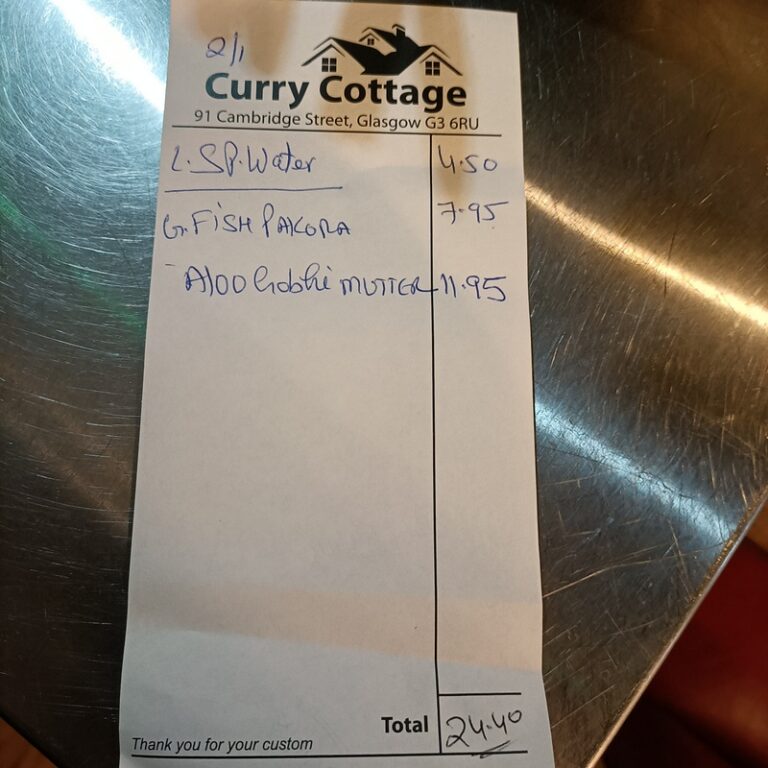 2/1
Curry Cottage
91 Cambridge Street, Glasgow G3 6RU
L.SP.Water 4.50
G.FISH PAKORA 7.95
Aloo Gobhi MUTTER 11.95
Total 24.40
Thank you for your custom